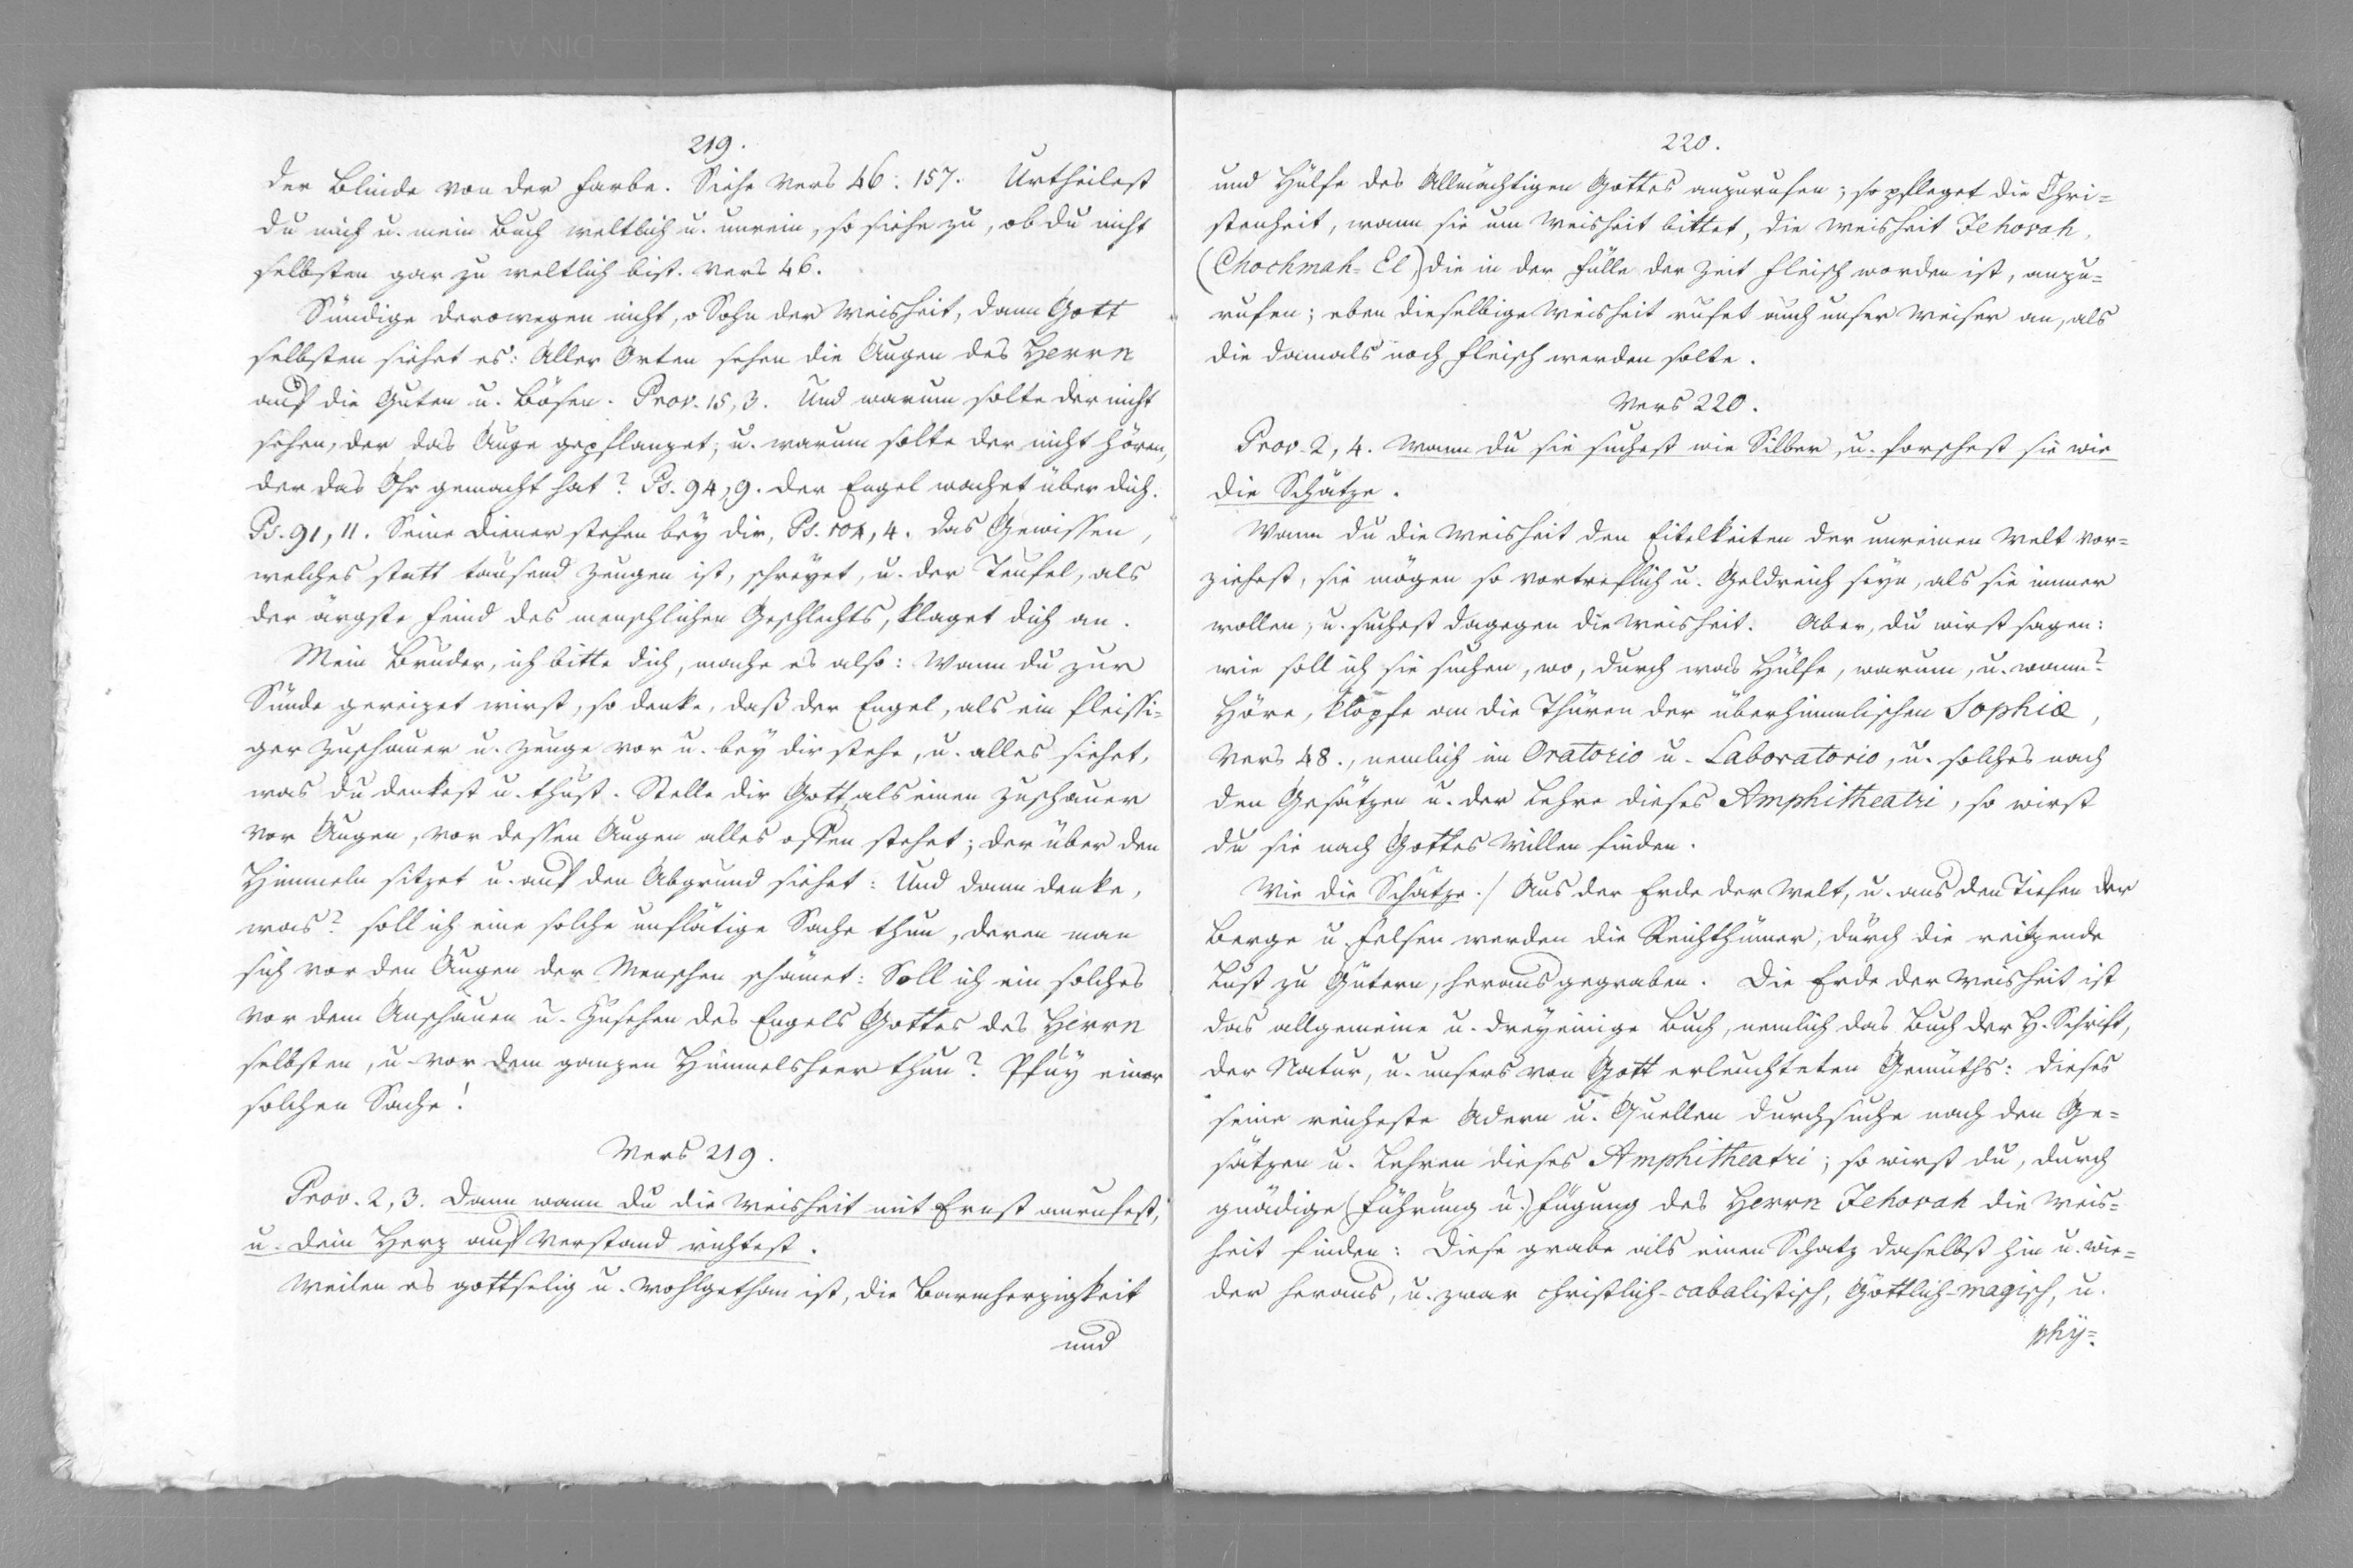 219.
der Blinde von der Farbe. Siehe Vers 46: 157. Urtheilest
du mich u. mein Buch weltlich u. unrein, so siehe zu, ob du nicht
selbsten gar zu weltlich bist. Vers 46.
Sündige derowegen nicht, o Sohn der Weisheit, dann Gott
selbsten siehet es: Aller Orten sehen die Augen des Herrn
auf die Guten u. Bösen. Prov. 15, 3. Und warum solte der nicht
sehen, der das Auge gepflanzet, u. warum solte der nicht hören,
der das Ohr gemacht hat? Ps. 94, 9. der Engel wachet über dich.
Ps. 91, 11. Seine Diener stehen bey dir, Ps. 104, 4. das Gewissen,
welches statt tausend Zeugen ist, schreyet, u. der Teufel, als
der ärgste Feind des menschlichen Geschlechts, klaget dich an.
Mein Bruder, ich bitte dich, mache es also: Wann du zur
Sünde gereizet wirst, so denke, daß der Engel, als ein fleissi=
ger Zuschauer u. Zeuge vor u. bey dir stehe, u. alles siehet,
was du denkest u. thust. Stelle dir Gott als einen Zuschauer
vor Augen, vor dessen Augen alles offen stehet; der über den
Himmeln sitzet u. auf den Abgrund siehet: Und dann denke,
was? soll ich eine solche unflätige Sache thun, deren man
sich vor den Augen der Menschen schämet: Soll ich ein solches
vor dem Anschauen u. Zusehen des Engels Gottes des Herrn
selbsten, u. vor dem ganzen Himmelsheer thun? Pfuy einer
solchen Sache!
Vers 219.
Prov. 2, 3. Dann wann du die Weisheit mit Ernst anrufest,
u. dein Herz auf Verstand richtest.
Weilen es gottselig u. wohlgethan ist, die Barmherzigkeit
und
220.
und Hülfe des Allmächtigen Gottes anzurufen; so pfleget die Chri=
stenheit, wann sie um Weisheit bittet, die Weisheit Jehovah,
(Chochmah=El) die in der Fülle der Zeit Fleisch worden ist, anzu=
rufen; eben dieselbige Weisheit rufet auch unser Weiser an, als
die damals noch Fleisch werden solte.
Vers 220.
Prov. 2, 4. Wann du sie suchest wie Silber, u. forschest sie wie
die Schätze.
Wann du die Weisheit den Eitelkeiten der unreinen Welt vor=
ziehest, sie mögen so vortreflich u. Geldreich seyn, als sie immer
wollen, u. suchest dagegen die Weisheit. Aber, du wirst sagen:
wie soll ich sie suchen, wo, durch was Hülfe, warum, u. wann?
Höre, klopfe an die Thüren der überhimmlischen Sophiæ,
Vers 48., nemlich im Oratorio u. Laboratorio, u. solches nach
den Gesätzen u. der Lehre dieses Amphitheatri, so wirst
du sie nach Gottes Willen finden.
Wie die Schätze./ Aus der Erde der Welt, u. aus den Tiefen der
Berge u. Felsen werden die Reichthümer, durch die reitzende
Lust zu Gütern, herausgegraben. Die Erde der Weisheit ist
das allgemeine u. dreyeinige Buch, nemlich das Buch der H. Schrift,
der Natur, u. unsers von Gott erleuchteten Gemüths: dieses
seine reicheste Adern u. Quellen durchsuche nach den Ge=
sätzen u. Lehren dieses Amphitheatri; so wirst du, durch
gnädige (Führung u.) Fügung des Herrn Jehovah die Weis=
heit finden: Diese grabe als einen Schatz daselbst hin u. wie=
der heraus, u. zwar christlich-cabalistisch, Göttlich-magisch, u.
phy=